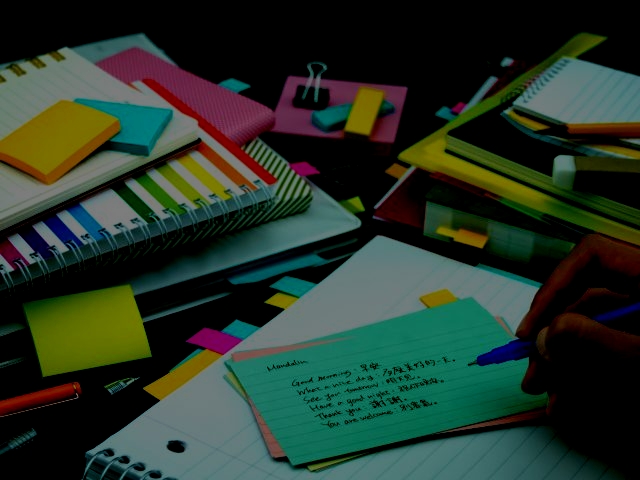 Mandarin
Good morning. 早安
What a nice day. 多麼美好的一天.
See you tomorrow. 明天見.
Have a good night.
Thank you. 謝謝.
You are welcome. 別客氣.